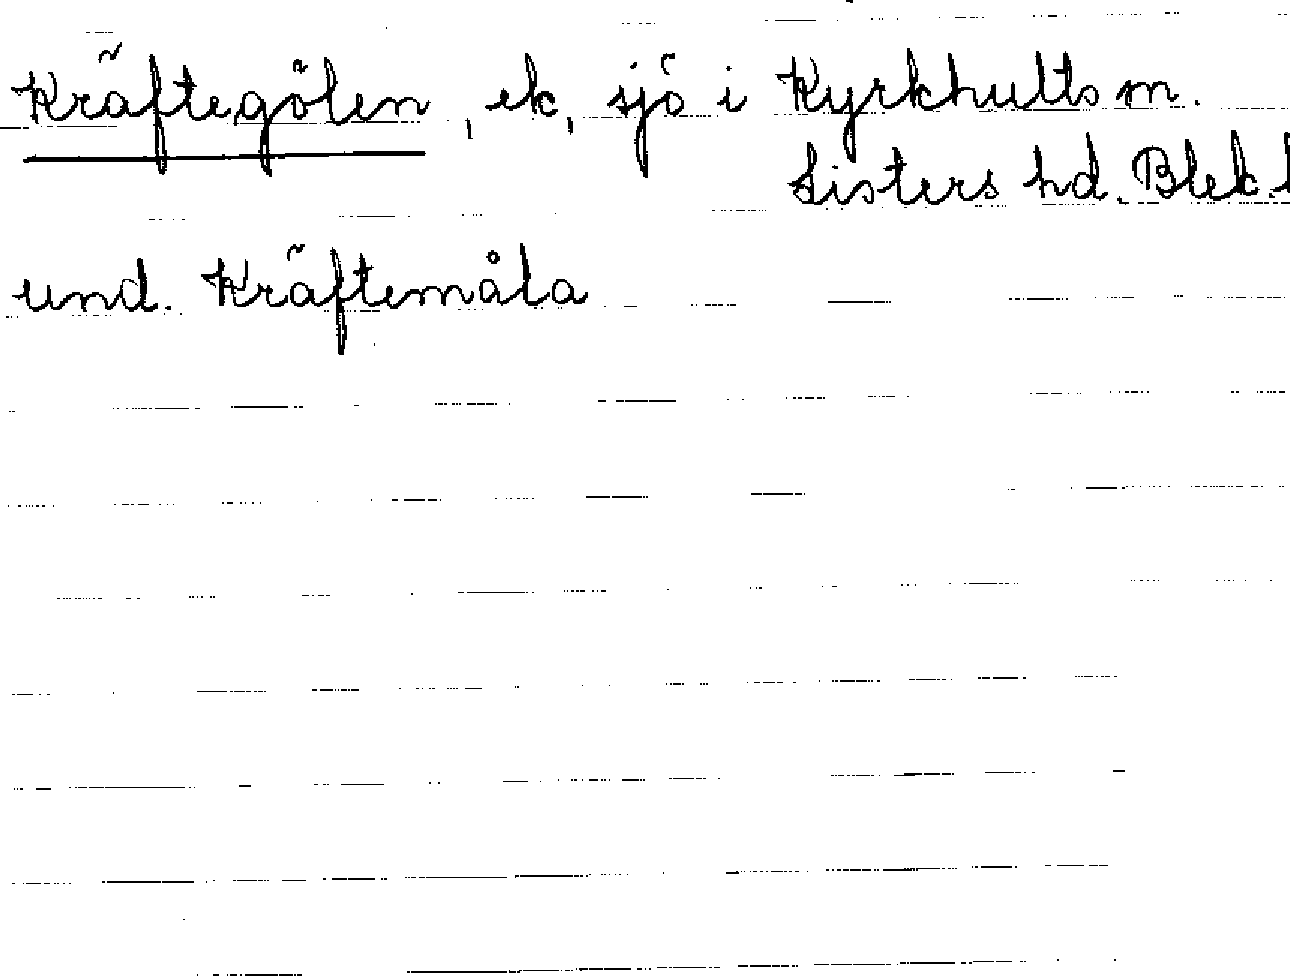 Kräftegölen, ek, sjö i Kyrkhults sn.
Listers hd. Blek. l
und. Kräftemåla